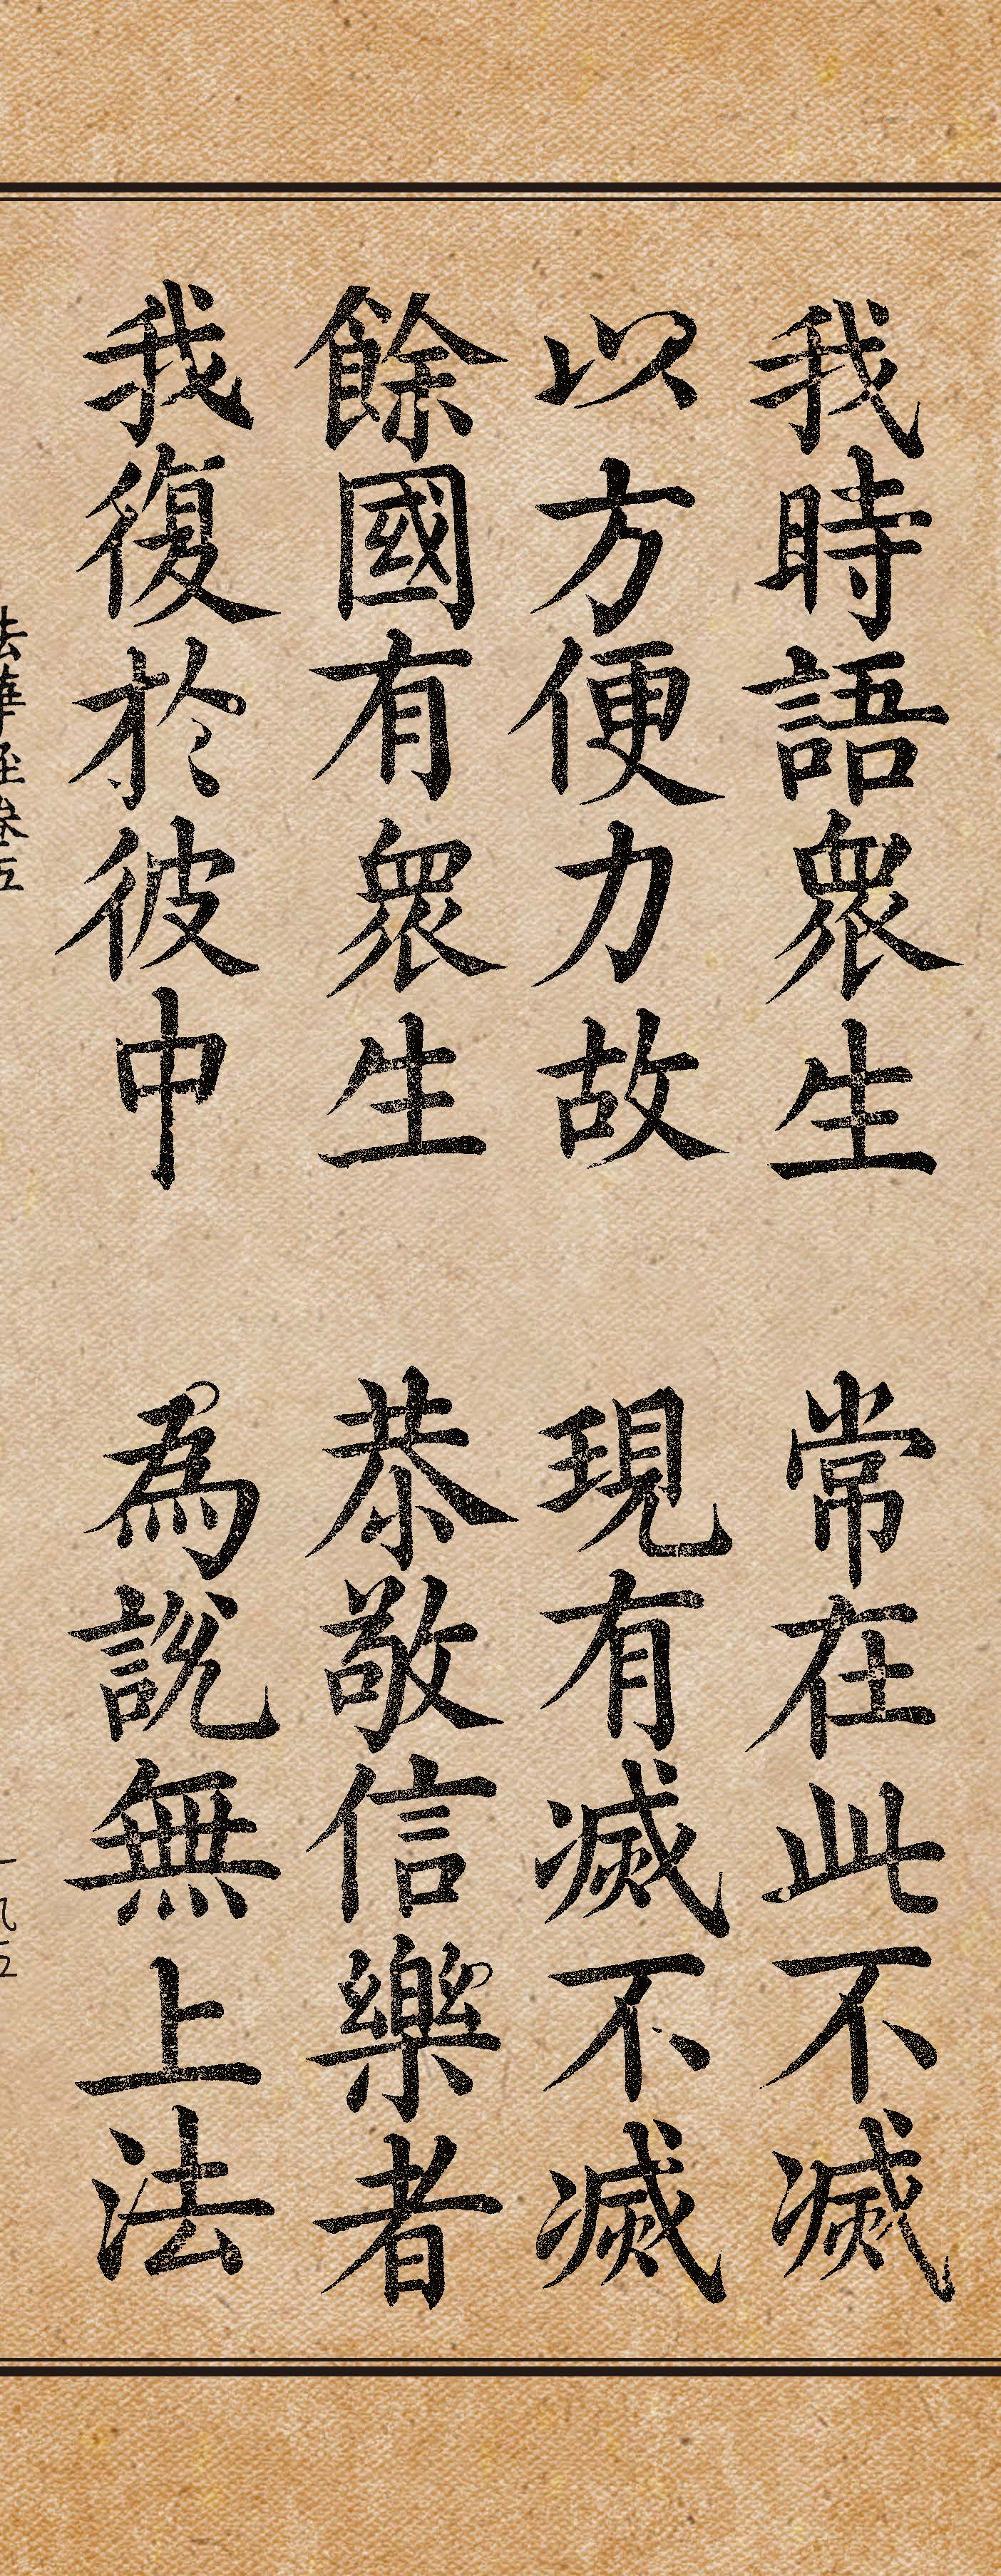 我時語衆生 常在此不滅
以方便力故 現有滅不滅
餘國有衆生 恭敬信樂者
我復於彼中 為說無上法
法華經卷五 一九五